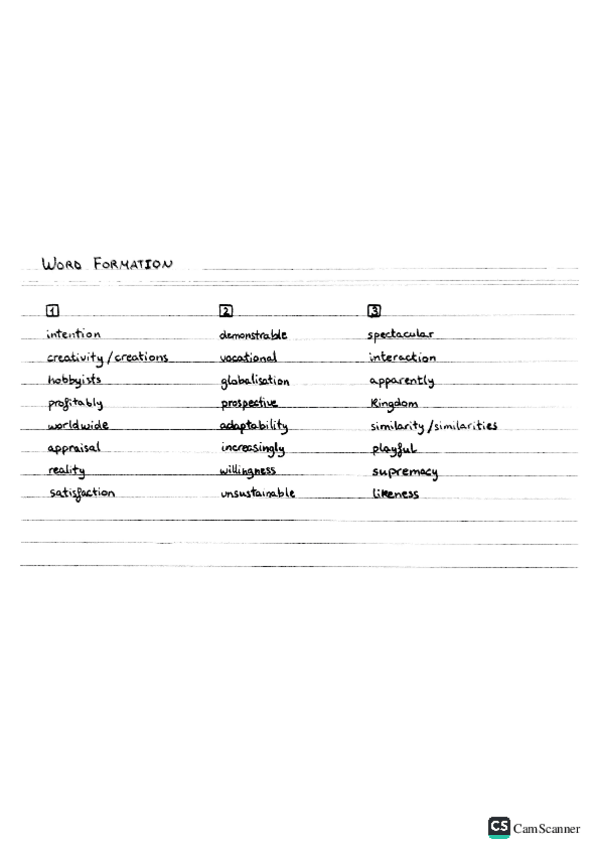 WORD FORMATION
1 2 3
intention demonstrable spectacular
creativity/creations vocational interaction
hobbyists globalisation apparently
profitably prospective Kingdom
worldwide adaptability similarity/similarities
appraisal increasingly playful
reality willingness supremacy
satisfaction unsustainable likeness
CS CamScanner